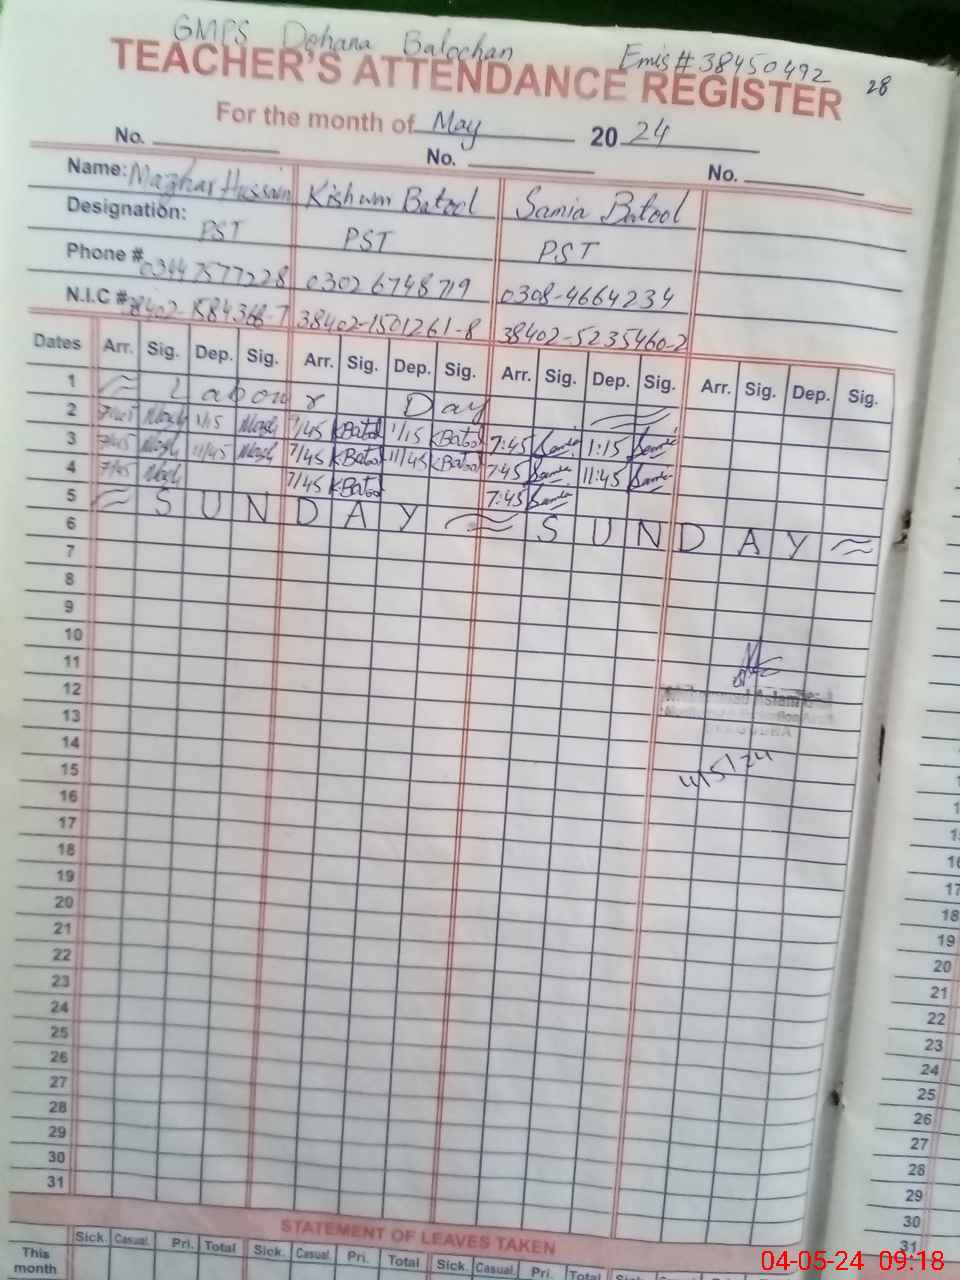 GMPS Dohana Balochan Emis # 38450492
28
TEACHER'S ATTENDANCE REGISTER
For the month of May 2024
No. No. No.
Name: Mazhar Hussain Kishwm Batool Samia Batool
Designation: PST PST PST
Phone # 03447577228 0302 6748719 0308-4664234
N.I.C # 38402-1501261-8 38402-5235460-2
Dates Arr. Sig. Dep. Sig. Arr. Sig. Dep. Sig. Arr. Sig. Dep. Sig. Arr. Sig. Dep. Sig.
1 Labour Day
2 7/45 Mazh 1/15 Mazh 7/45 KBatol 1/15 KBatol 7:45 Samia 1:15 Samia
3 7/45 Mazh 11/45 Mazh 7/45 KBatol 11/45 KBatol 7:45 Samia 11:45 Samia
4 7/45 Mazh 7/45 KBatol 7:45 Samia
5 SUNDAY SUNDAY
6
7
8
9
10
11
12
13
14
15
16
17
18
19
20
21
22
23
24
25
26
27
28
29
30
31
4/5/24
STATEMENT OF LEAVES TAKEN
Sick. Casual. Pri. Total Sick. Casual. Pri. Total Sick. Casual. Pri. Total Sick. Casual.
This month
16
17
18
19
20
21
22
23
24
25
26
27
28
29
30
31
04-05-24 09:18